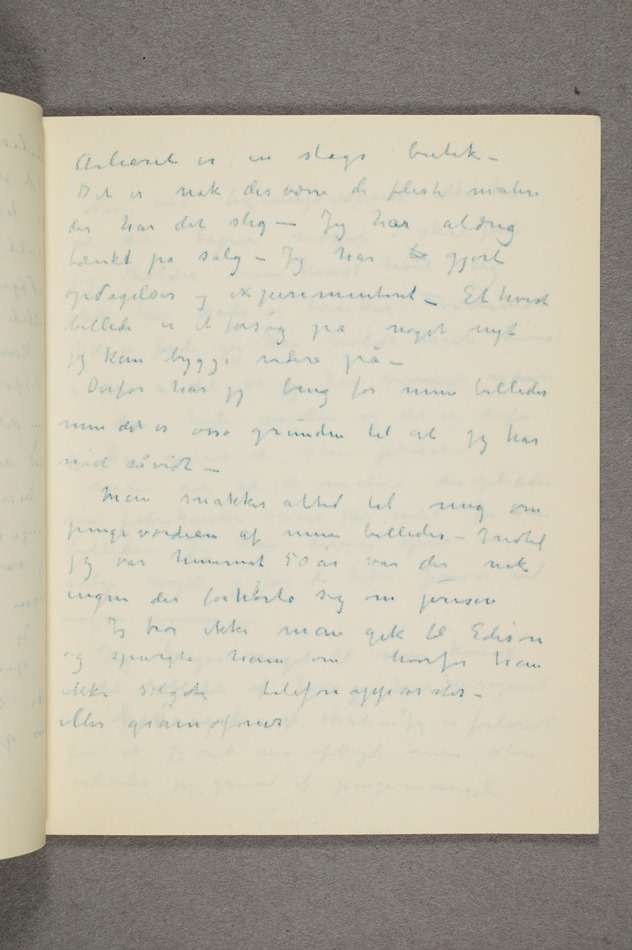 Atelieret er en slags butik –
Det er nok desværre de fleste malere
der har det slig – Jeg har aldrig
tænkt på salg – Jeg har gjort
opdagelser og experimenteret – Et hvert
billede er et forsøg på noget nyt
jeg kan bygge videre på –
Derfor har jeg brug for mine billeder
men det er også grunden til at jeg har
nået så vidt –
Man snakker altid til mig om
pengeværdien af mine billeder – Indtil
jeg var henimot 50 år var der nok
ingen der forhørte sig om prisen
Jeg tror ikke man gik til Edison
og spurgte ham om hvorfor han
ikke solgte telefonapparater –
eller gramofoner